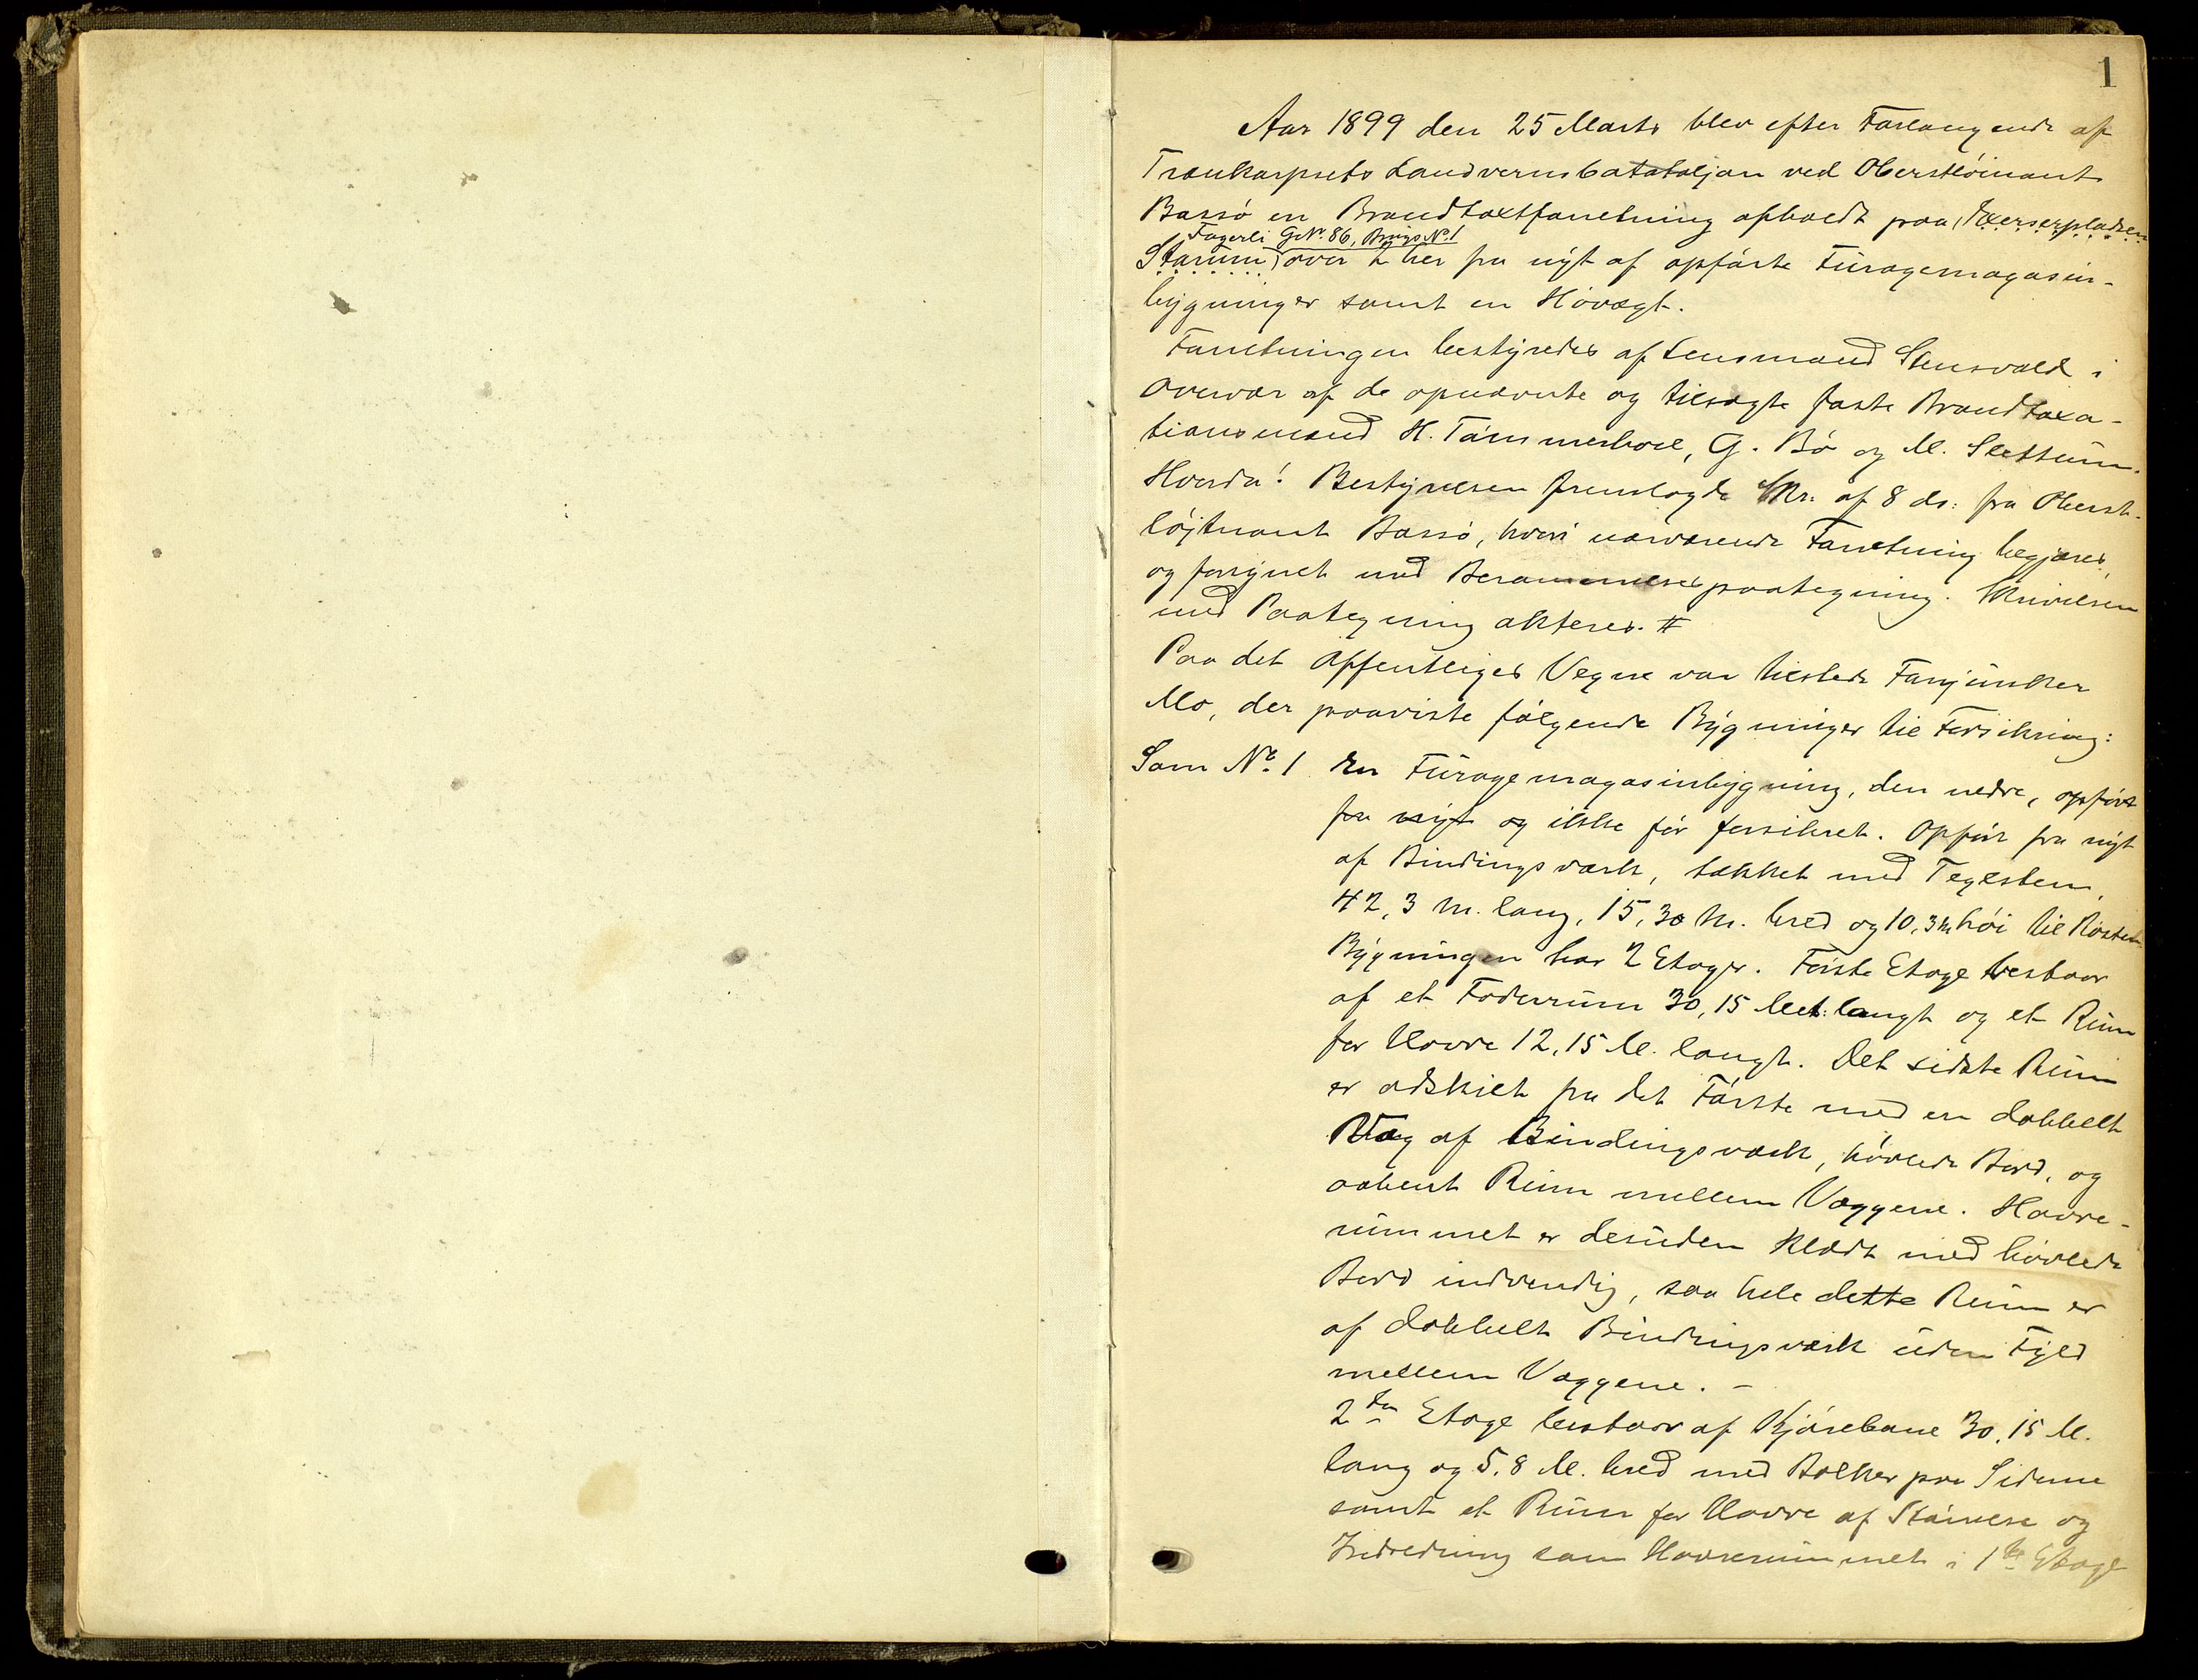 1
Aar 1899 den 25 Marts blev efter Forlangende af
Trænkorpsets Landvernsbatataljon ved Oberstløinant
Bassø en Brandtaxtforretning afholdt paa (Exserserpladsen
Fagerli GNr. 86, BrugsNo 1
Starum) over 2 her fra nyt af opførte Furagemagasin-
bygninger samt en Høvægt.
Forretningen bestyredes af Lensmand Stensvold i
Overvær af de opnævnte og tilsagte faste Brandtaxa-
tionsmænd H. Tømmerhol, G. Bø og M. Slettum.
Hvorda! Bestyrelsen fremlagde Skr: af 8 ds: fra Oberst-
løjtnant Bassø, hvori nærværende Forretning begjæres,
og forsynet med Berammelsespaategning. Skrivelsen
med Paategning akteres. #
Paa det Offentliges Vegne var tilstede Fanejunker
Mo, der paaviste følgende Bygninger til Forsikring:
Som No. 1 En Furagemagasinbygning, den nedre, opført
fra nyt og ikke før forsikret. Opført fra nyt
af Bindingsværk, tækket med Teglsten,
42,3 M. lang, 15,30 M. bred og 10,3 M høi til Røstet.
Bygningen har 2 Etager. Første Etage bestaar
af et Foderrum 30,15 Met: langt og et Rum
for Havre 12,15 M. langt. Det sidste Rum
er adskilt fra det Første med en dobbelt
Væg af Bindingsværk, høvlede Bord, og
aabent Rum mellem Væggene. Havre-
rummet er desuden klædt med høvlede
Bord indvendig, saa hele dette Rum er
af dobbelt Bindingsværk uden Fyld
mellem Væggene. -
2den Etage bestaar af Kjørebane 30,15 M.
lang og 5,8 M. bred med Bolker paa Siderne
samt et Rum for Havre af Størrelse og
Indredning som Havrerummet i 1ste Etage